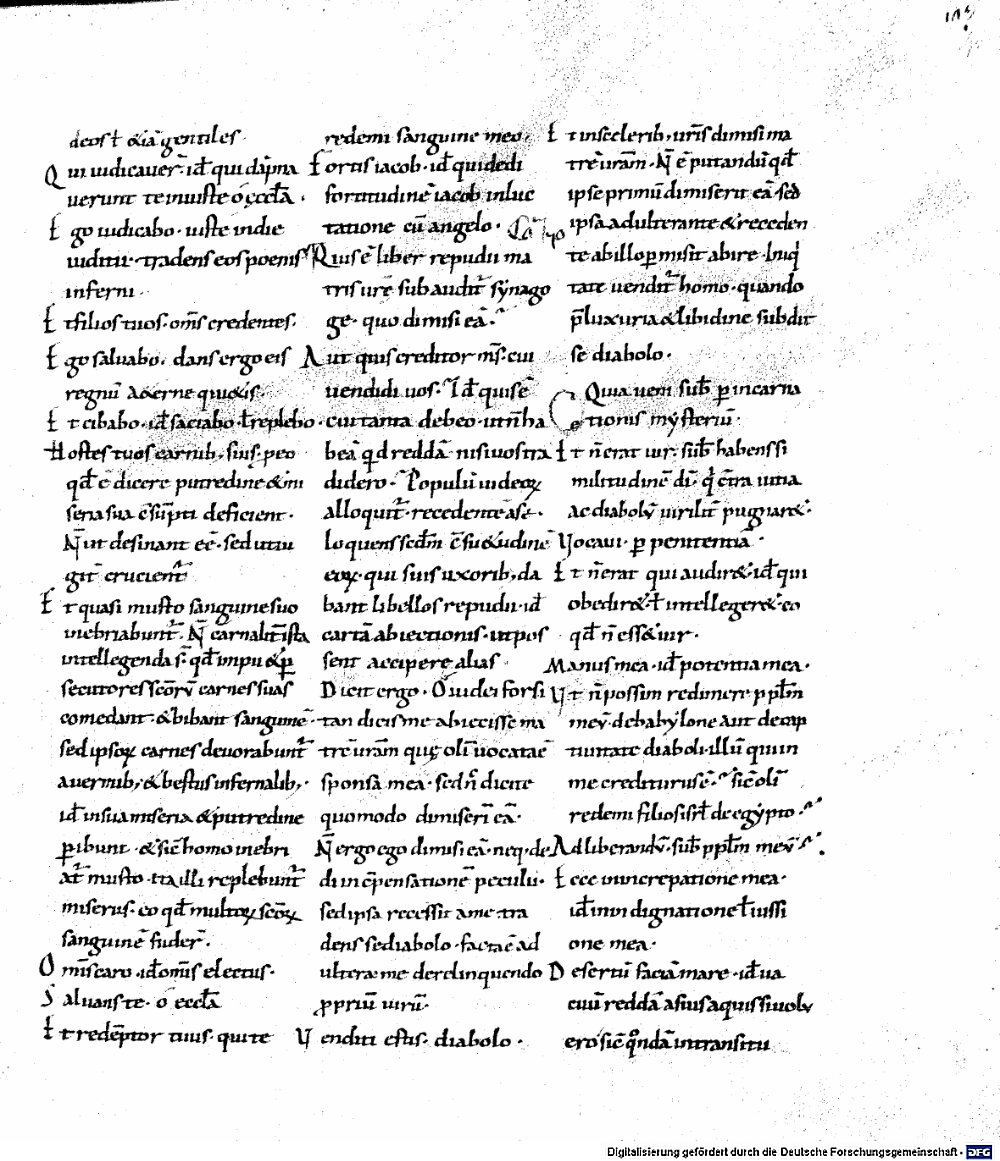 deos ł &iā gentiles·
Qui iudicauer̄· id̄ qui dāpna
uerunt te iniuste ó ęccła·
Ego iudicabo· iuste in die
iuditii· tradens eos poenis
inferni·
Et filios tuos· om̄s credentes·
Ego saluabo· dans ergo eis
regnū
Et cibabo· id̄ saciabo· ł replebo·
Hostes tuos carnib; suis·
qđ ē dicere putredine & mi
seria sua c̄sūpti deficient·
N̄ ut desinant eē· sed ut iu
git̄ crucient̄
Et quasi musto sanguine suo
inebriabunt̄· N̄ carnalit̄ ista
intellegenda s̄· qđ impii & ꝑ
secutores sc̄oꝝ carnes suas
comedant· & bibant sanguinē·
sed ipsoꝝ carnes deuorabunt̄
a uermib; & bestiis infernalib;·
id̄ in sua miseria & putredine
ꝑibunt· & sic̄ homo inebri
at̄ musto· ita illi replebunt̄
miseriis· eo qđ multoꝝ sc̄oꝝ
sanguinē fuder̄·
Om̄is caro· id̄ om̄is electus·
Saluans te· ó eccła
Et redēptor tuus· qui te
redemi sanguine meo·
Fortis iacob· id̄ qui dedi
fortitudinē iacob in luc
tatione cū angelo·
Quis ē liber repudii ma
tris ur̄e subaudit̄ sẏnago
ge· quo dimisi eā·
Aut quis creditor m̄s· cui
uendidi uos· Id̄ quis ē
cui tanta debeo· ut n̄ ha
beā qđ reddā nisi uos tra
didero· Populū iudeoꝝ
alloquit̄· recedentē a se·
loquens scđm c̄suetudinē
eoꝝ· qui suis uxorib; da
bant libellos repudii· id̄
cartā abiectionis· ut pos
sent accipere alias
Dicit ergo· O iudei forsi
tan dicis me abiecisse ma
trē urām quę olī uocata ē
sponsa mea· sed n̄ dicite
quomodo dimiserī eā·
N̄ ergo ego dimisi eā· neq; de
di in c̄pensationē peculii·
sed ipsa recessit a me· tra
dens se diabolo· facta ē ad
ultera· me derelinquendo
ꝓpriū uirū·
Venditi estis· diabolo·
Et in scelerib; uris̄ dimisi ma
trē urām· N̄ ē putandū qđ
ipse primū dimiserit eā· sed
ipsa adulterante & receden
te ab illo ꝑmisit abire· Iniq̇
tate uendit̄ homo· quando
ꝓ luxuria & libidine subdit
se diabolo·
Quia ueni sub̄ ꝑ incarna
tionis mẏsteriū·
Et n̄ erat uir· sub̄ habens si
militudinē dī· q̇ c̄tra uitia
ac diabolū uirilit̄ pugnar&·
Vocaui· ꝑ penitentiā·
Et n̄ erat qui audir&· id̄ qui
obedir& ł intelleger& eo
qđ n̄ ess& uir·
Manus mea· id̄ potentia mea·
Vt n̄ possim redimere ppłm
meū de babẏlone aut de cap
tiuitate diaboli· illū qui in
me crediturus ē· sic̄ olī
redemi filios isrł de egẏpto·
Ad liberandū· sub̄ ppłm meū
Ecce in increpatione mea·
id̄ in indignatione ł iussi
one mea·
Desertū faciā mare· id̄ ua
cuū reddā a suis aquis si uolu
ero· sic̄ quondā in transitu
Digitalisierung gefördert durch die Deutsche Forschungsgemeinschaft - DFG